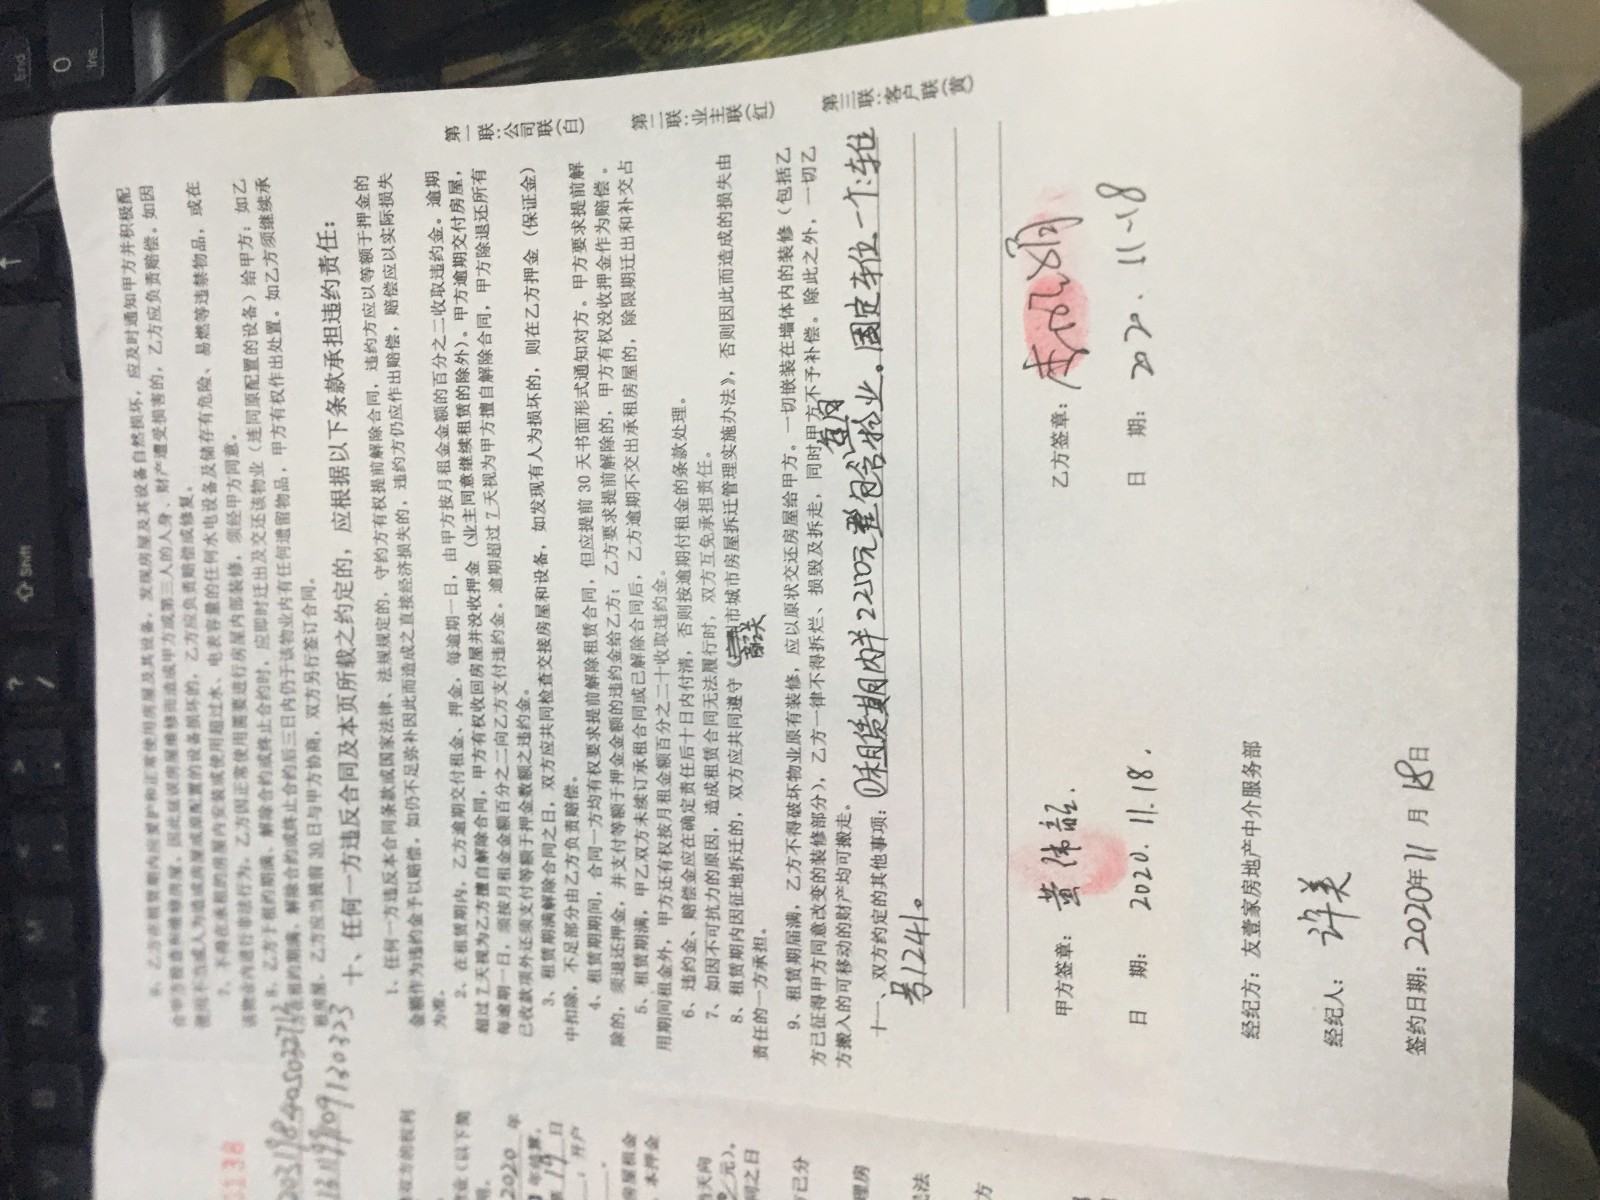 6、乙方在租赁期内应爱护和正常使用房屋及其设备，发现房屋及其设备自然损坏，应及时通知甲方并积极配
合甲方检查和维修房屋，因此延误房屋维修而造成甲方或第三人的人身、财产遭受损害的，乙方应负责赔偿。如因
使用不当或人为造成房屋或原配置的设备损坏的，乙方应负责赔偿或修复。
7、不得在承租的房屋内安装或使用超过水、电表容量的任何水电设备及储存有危险、易燃等违禁物品，或在
该物业内进行非法行为。乙方因正常使用需要进行房屋内部装修，须经甲方同意。
8、乙方于租约期满、解除合约或终止合约时，应即时迁出及交还该物业（连同原配置的设备）给甲方；如乙
方在租约期满、解除合约或终止合约后三日内仍于该物业内有任何遗留物品，甲方有权作出处置。如乙方须继续承
租房屋，乙方应当提前30日与甲方协商，双方另行签订合同。
十、任何一方违反合同及本页所载之约定的，应根据以下条款承担违约责任：
1、任何一方违反本合同条款或国家法律、法规规定的，守约方有权提前解除合同，违约方应以等额于押金的
金额作为违约金予以赔偿，如仍不足弥补因此而造成之直接经济损失的，违约方仍应作出赔偿，赔偿应以实际损失
为准。
2、在租赁期内，乙方逾期交付租金、押金，每逾期一日，由甲方按月租金金额的百分之二收取违约金。逾期
超过7天视为乙方擅自解除合同，甲方有权收回房屋并没收押金（业主同意继续租赁的除外）。甲方逾期交付房屋，
每逾期一日，须按月租金金额百分之二向乙方支付违约金。逾期超过7天视为甲方擅自解除合同，甲方除退还所有
已收款项外还须支付等额于押金数额之违约金。
3、租赁期满解除合同之日，双方应共同检查交接房屋和设备，如发现有人为损坏的，则在乙方押金（保证金）
中扣除，不足部分由乙方负责赔偿。
4、租赁期期间，合同一方均有权要求提前解除租赁合同，但应提前30天书面形式通知对方。甲方要求提前解
除的，须退还押金，并支付等额于押金金额的违约金给乙方；乙方要求提前解除的，甲方有权没收押金作为赔偿。
5、租赁期满，甲乙双方未续订承租合同或已解除合同后，乙方逾期不交出承租房屋的，除限期迁出和补交占
用期间租金外，甲方还有权按月租金额百分之二十收取违约金。
6、违约金、赔偿金应在确定责任后十日内付清，否则按逾期付租金的条款处理。
7、如因不可抗力的原因，造成租赁合同无法履行时，双方互免承担责任。
8、租赁期内因征地拆迁的，双方应共同遵守《韶关市城市房屋拆迁管理实施办法》，否则因此而造成的损失由
责任的一方承担。
9、租赁期届满，乙方不得破坏物业原有装修，应以原状交还房屋给甲方。一切嵌装在墙体内的装修（包括乙
方已征得甲方同意改变的装修部分），乙方一律不得拆烂、损毁及拆走，同时甲方不予补偿。除此之外，一切乙
方搬入的可移动的财产均可搬走。
十一、双方约定的其他事项：①租赁期内并2250元每月包含物业。固定车位一个：车位
号1241。
甲方签章：黄伟
乙方签章：
日 期：2020.11.18.
日 期：2020.11-18
经纪方：友壹家房地产中介服务部
经纪人：许美
签约日期：2020年11月18日
第一联：公司联（白）
第二联：业主联（红）
第三联：客户联（黄）